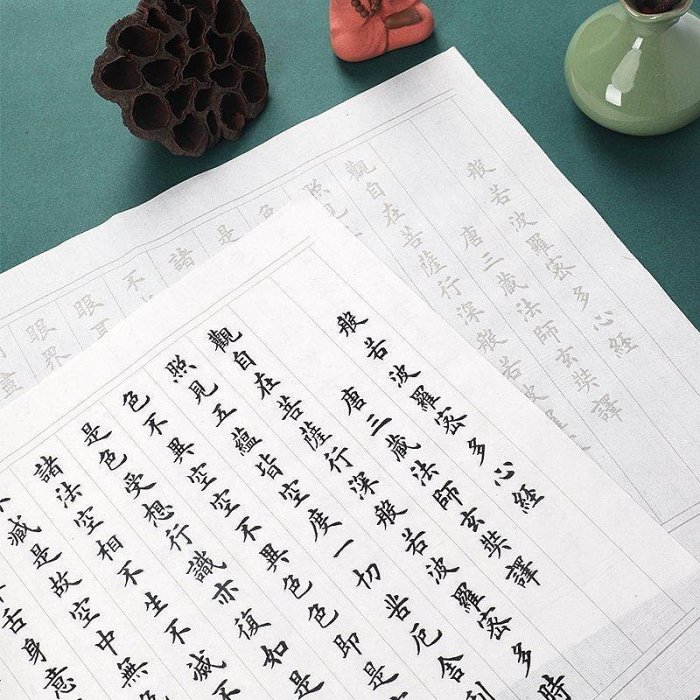 般若波羅密多心經
唐三藏法師玄奘譯
觀自在菩薩行深般若波羅密多時
照見五蘊皆空度一切苦厄舍利
色不異空空不異色色即是
是色受想行識亦復如是
諸法空相不生不滅不
不減是故空中無色
舌身意
般若波羅密多心經
唐三藏法師玄奘譯
觀自在菩薩行深般若波
照見
色
是
諸
不
眼耳
眼界
盡